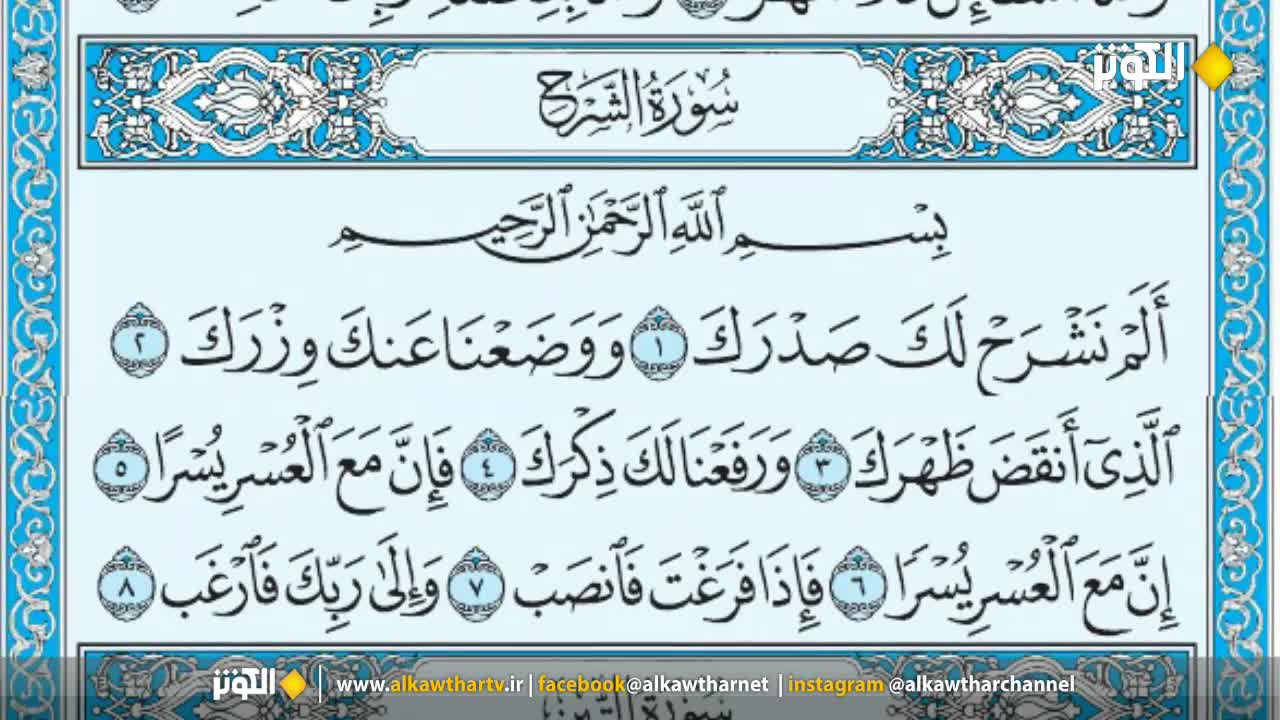 الكوثر
سُورَةُ الشَّرْحِ
بِسْمِ ٱللَّهِ ٱلرَّحْمَٰنِ ٱلرَّحِيمِ
أَلَمْ نَشْرَحْ لَكَ صَدْرَكَ ١ وَوَضَعْنَا عَنكَ وِزْرَكَ ٢
ٱلَّذِىٓ أَنقَضَ ظَهْرَكَ ٣ وَرَفَعْنَا لَكَ ذِكْرَكَ ٤ فَإِنَّ مَعَ ٱلْعُسْرِ يُسْرًا ٥
إِنَّ مَعَ ٱلْعُسْرِ يُسْرًا ٦ فَإِذَا فَرَغْتَ فَٱنصَبْ ٧ وَإِلَىٰ رَبِّكَ فَٱرْغَب ٨
الكوثر | www.alkawthartv.ir | facebook@alkawtharnet | instagram @alkawtharchannel